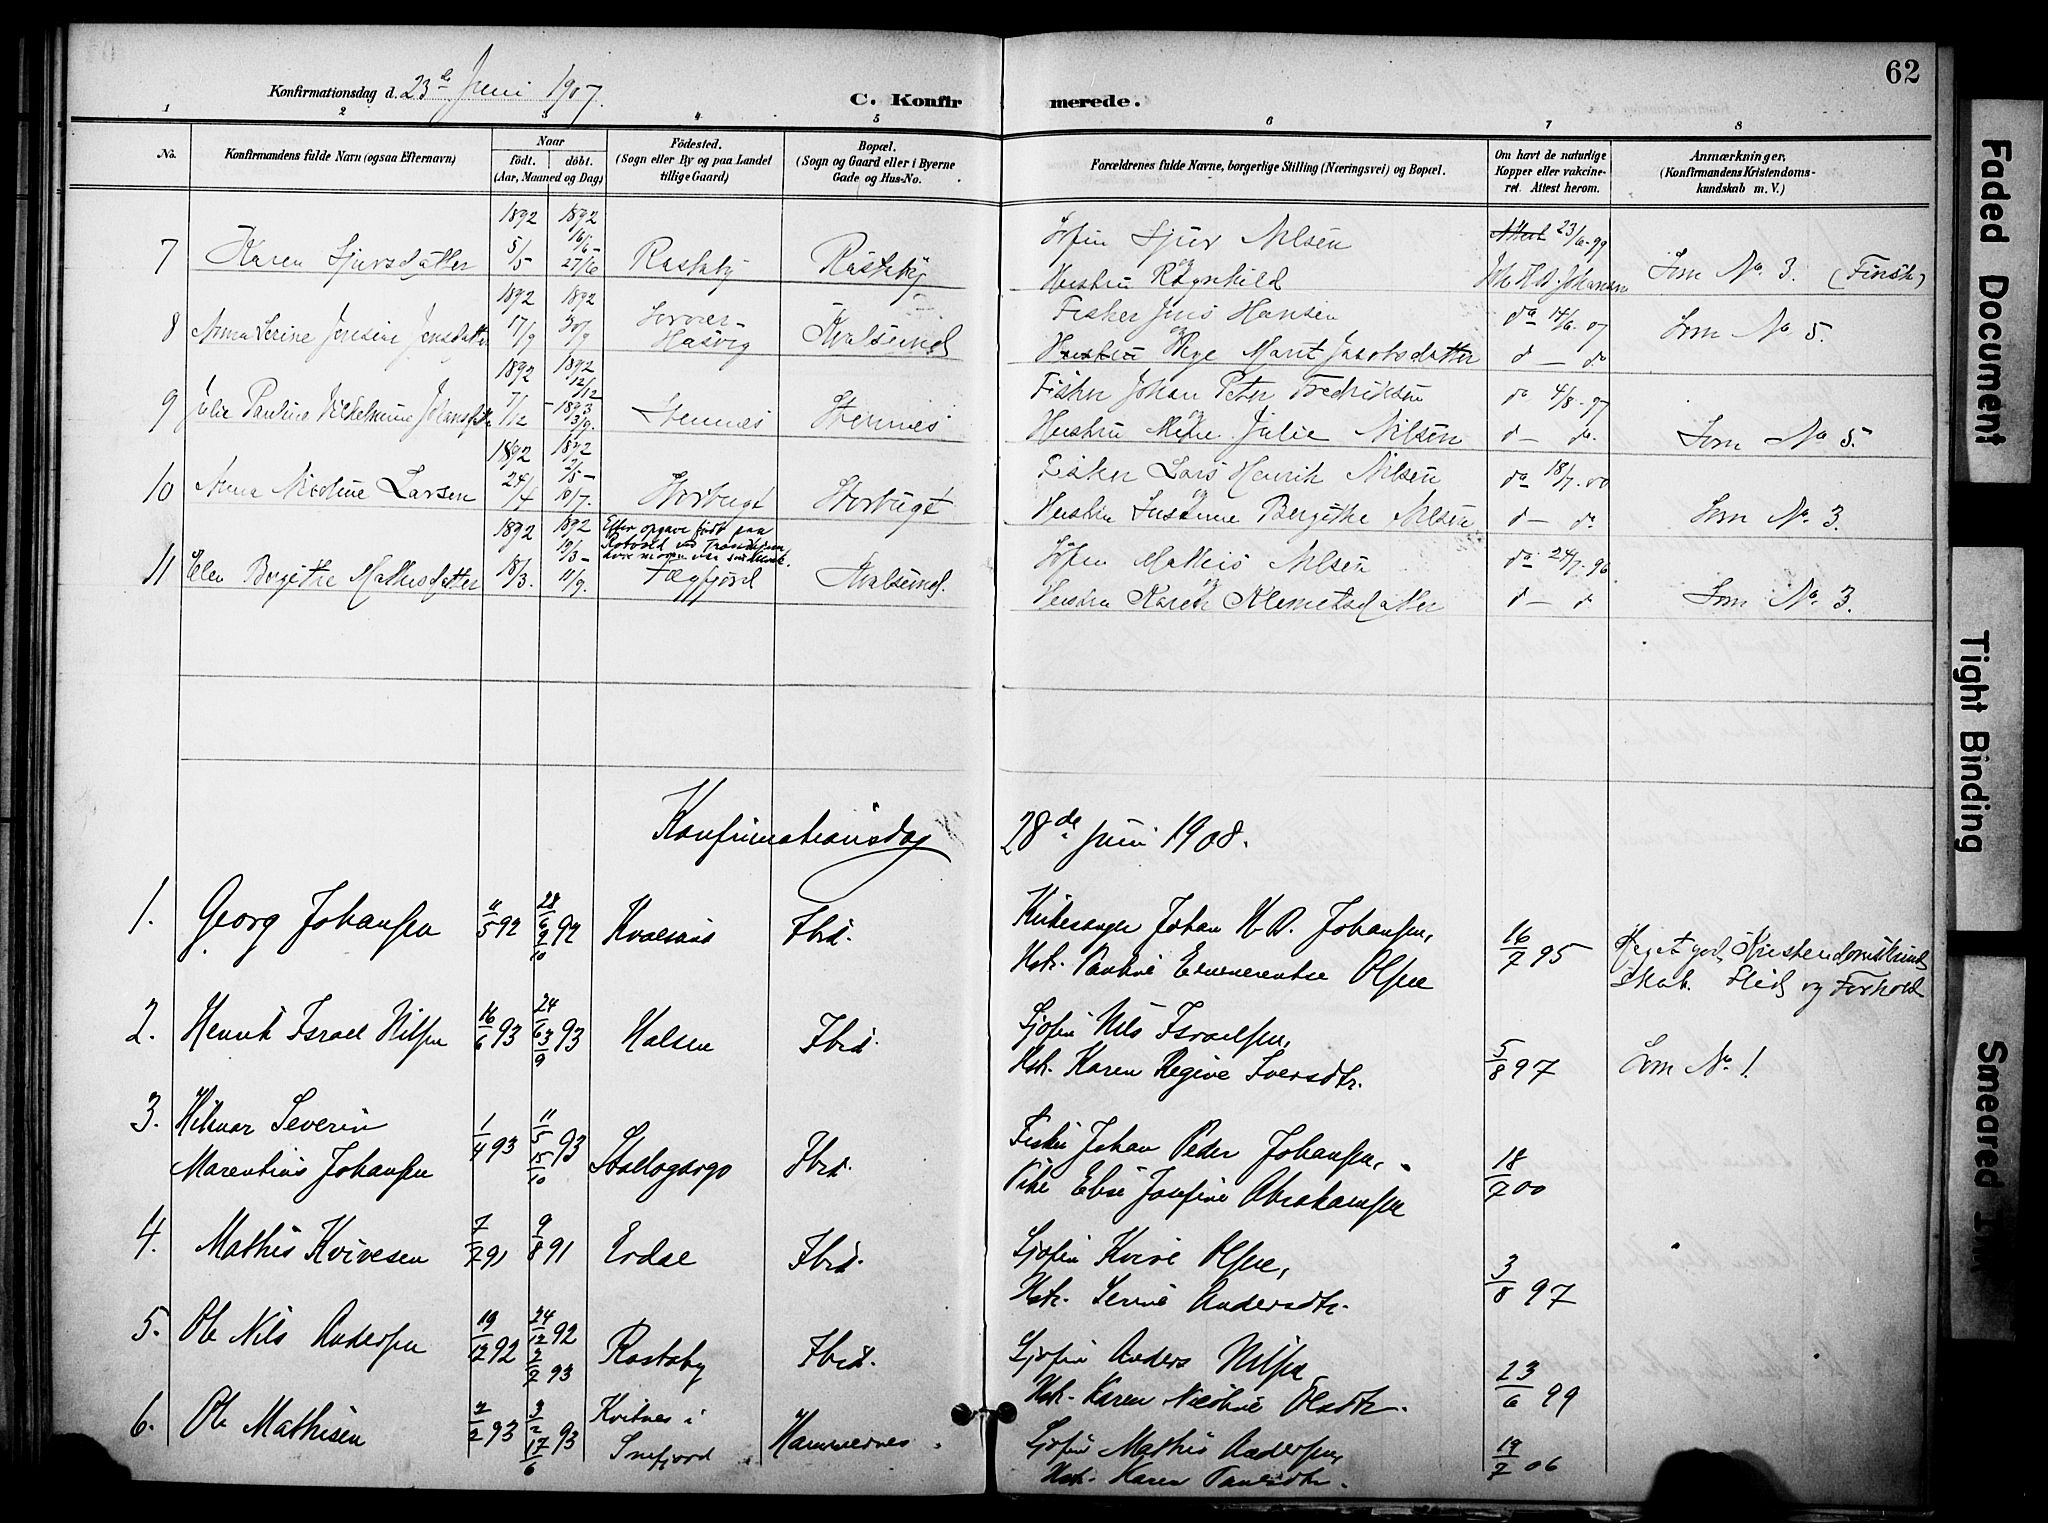 62
Konfirmationsdag d. 23de Juni 1907.
C. Konfirmerede.
1 2 3 4 5 6 7 8
No.
Konfirmandens fulde Navn (ogsaa Efternavn)
Naar
födt. döbt.
(Aar, Maaned og Dag)
Födested.
(Sogn eller By og paa Landet
tillige Gaard)
Bopæl.
(Sogn og Gaard eller i Byerne
Gade og Hus-No.
Forældrenes fulde Navne, borgerlige Stilling (Næringsvei) og Bopæl.
Om havt de naturlige
Kopper eller vakcine-
ret. Attest herom.
Anmærkninger,
(Konfirmandens Kristendoms-
kundskab m. V.)
7 Karen Sjursdatter 1892 5/5 1892 16/6 - 27/6 Rastaby Rastaby
Sjur Nilsen
og
Hustru Ragnhild
Attest 23/6-99
Som No. 3. (Finsk)
8 Anna Serine Jensine Jensdatter 1892 17/9 1892 Hasvig Kvalsund
Fisker Jens Hansen
og
Marit Jacobsdatter
do 14/6-07
d — do
Som No 5.
9 Julie Paulina Vilhelmine 1892 7/12 1892 12/12 - 1893 3/9. Stennes Stennes
Fisker Johan Peter Fredriksen
og
Hustru Julie Nilsen
do 4/8-97
d — do.
Som No 5.
10 Anna Nicoline Larsen 1892 24/4 1892 2/5 - 10/7. Storbugt Storbugt
Fisker Lars Henrik Nilsen
og
Hustru Susanne Bergithe Nilsen
do 18/7-00
d — do
Som No. 3.
11 Elen Bergithe Mathisdatter 1892 18/3. 1892 19/3 - 11/9.
Efter opgave født paa
Rotvold ved Trondhjem
hvor moren var
Fægfjord Kvalsund.
Mathis Nilsen
og
Hustru Karen Klemetsdatter
do 24/7-96
d — d
Som No. 3.
Konfirmationsdag 28de Juni 1908.
1. Georg Johansen 11/5 92 28/6 9/10 92 Kvalsund Ibid.
Kirkesanger Johan H. D. Johansen,
Hstr. Pauline Emmerentse Olsen
16/7 95
Meget god Kristendomskund
skab. Flid og Forhold
2. Henrik Israel Nilsen 16/6 93 24/6 3/9 93 Halsen Ibid.
Sjøfin Nils Israelsen,
Hstr. Karen Regine Iversdtr.
5/8 97
Som No. 1.
3. Hilmar Severin
Marentius Johansen 1/4 93 11/5 15/10 93 Stallogargo Ibid.
Fisker Johan Peder Johansen,
Pike Elise Josefine Abrahamsen
18/7 00
4. Mathis Kvivesen 7/7 91 9/8 91 Erdal Ibid.
Sjøfin Kvive Olsen,
Hstr. Serine Andersdtr.
3/8 97
5. Ole Nils Andersen 19/12 92 24/12 92 2/7 93 Rastaby Ibid.
Sjøfin Anders Nilsen
Hstr. Karen Nicoline Olsdtr.
23/6 99
6. Ole Mathisen 2/2 93 3/2 17/6 93 Kvitnes i
Snefjord Hammernes.
Sjøfin Mathis Andersen,
Hstr. Karen Paulsdtr.
19/7 06
Faded Document
Tight Binding
Smeared Ink